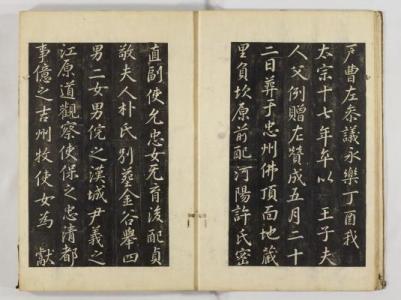 戶曹左叅議永樂丁酉我
太宗十七年卒以 王子夫
人父例贈左贊成五月二十
二日葬于忠州佛頂面地藏
里負坎原前配河陽許氏密
直副使允忠女无育後配貞
敬夫人朴氏別葬金谷擧四
男二女男侻之漢城尹義之
江原道觀察使保之忠清都
事億之吉州牧使女為 獻